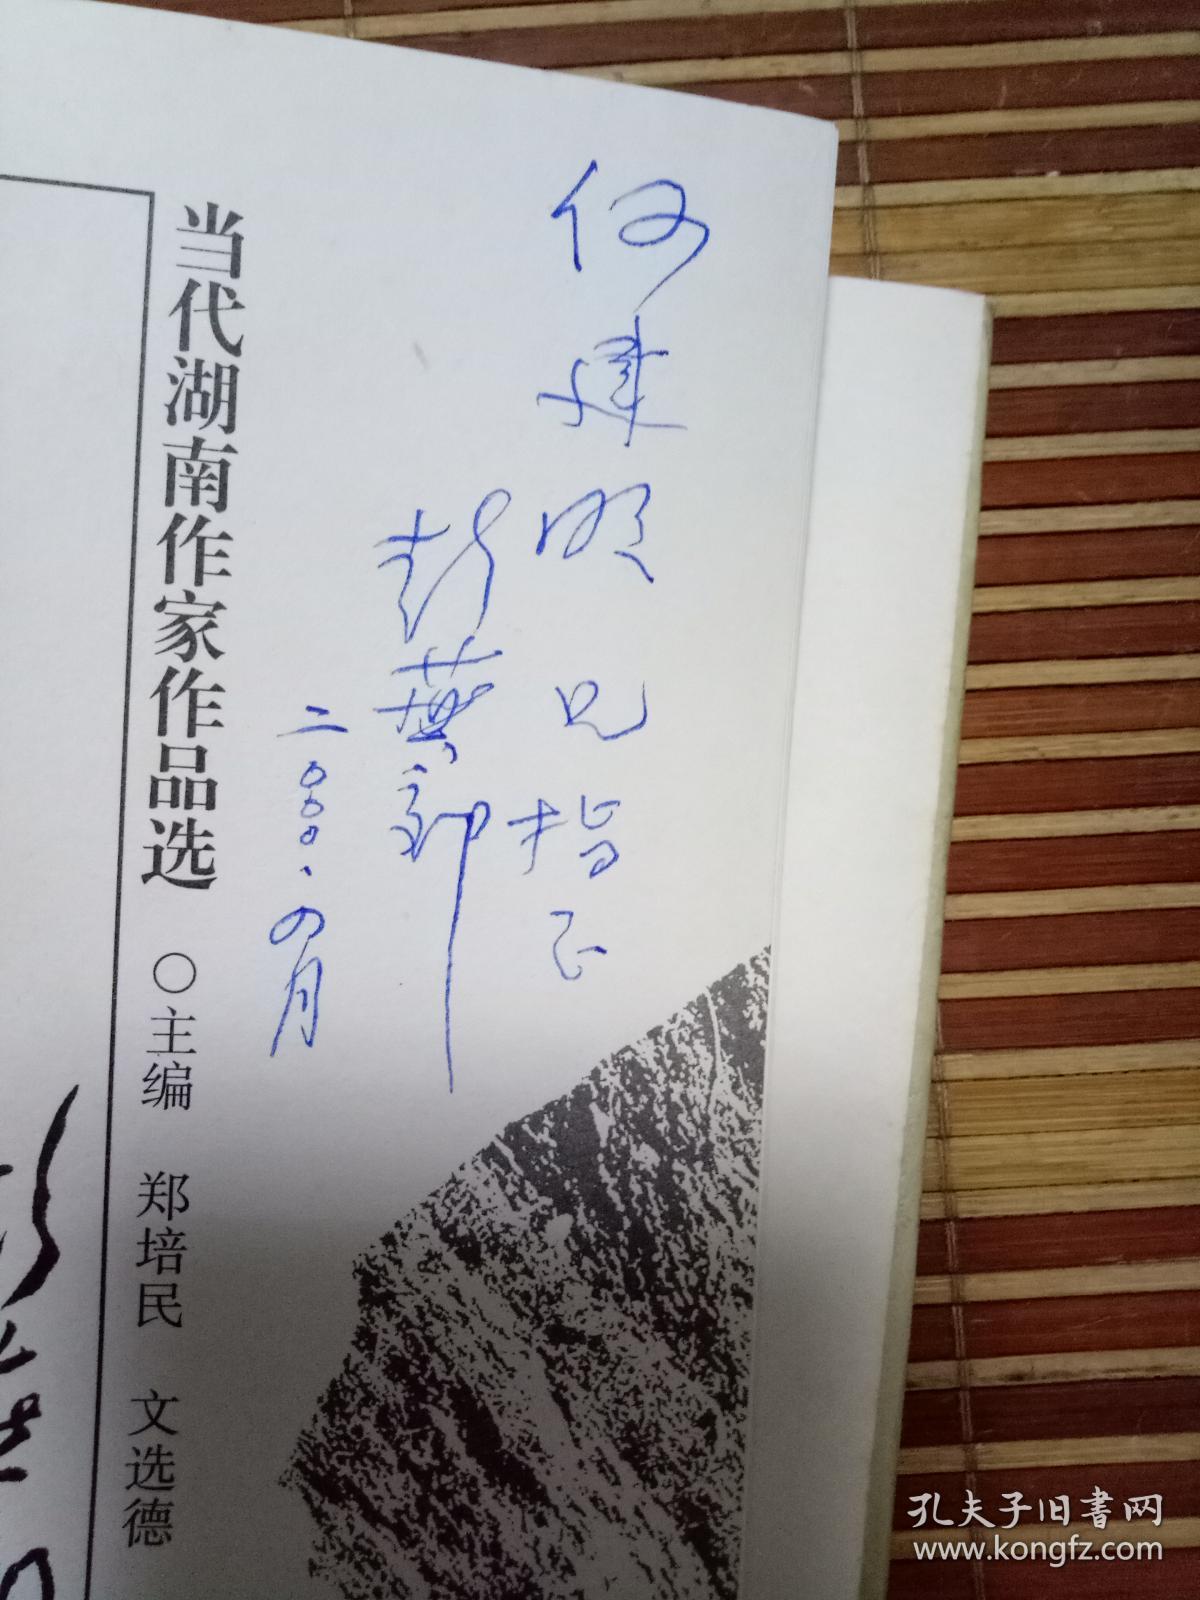 何建明兄指正
彭燕郊
二〇〇〇.四月
当代湖南作家作品选 ○主编 郑培民 文选德
孔夫子旧书网
www.kongfz.com